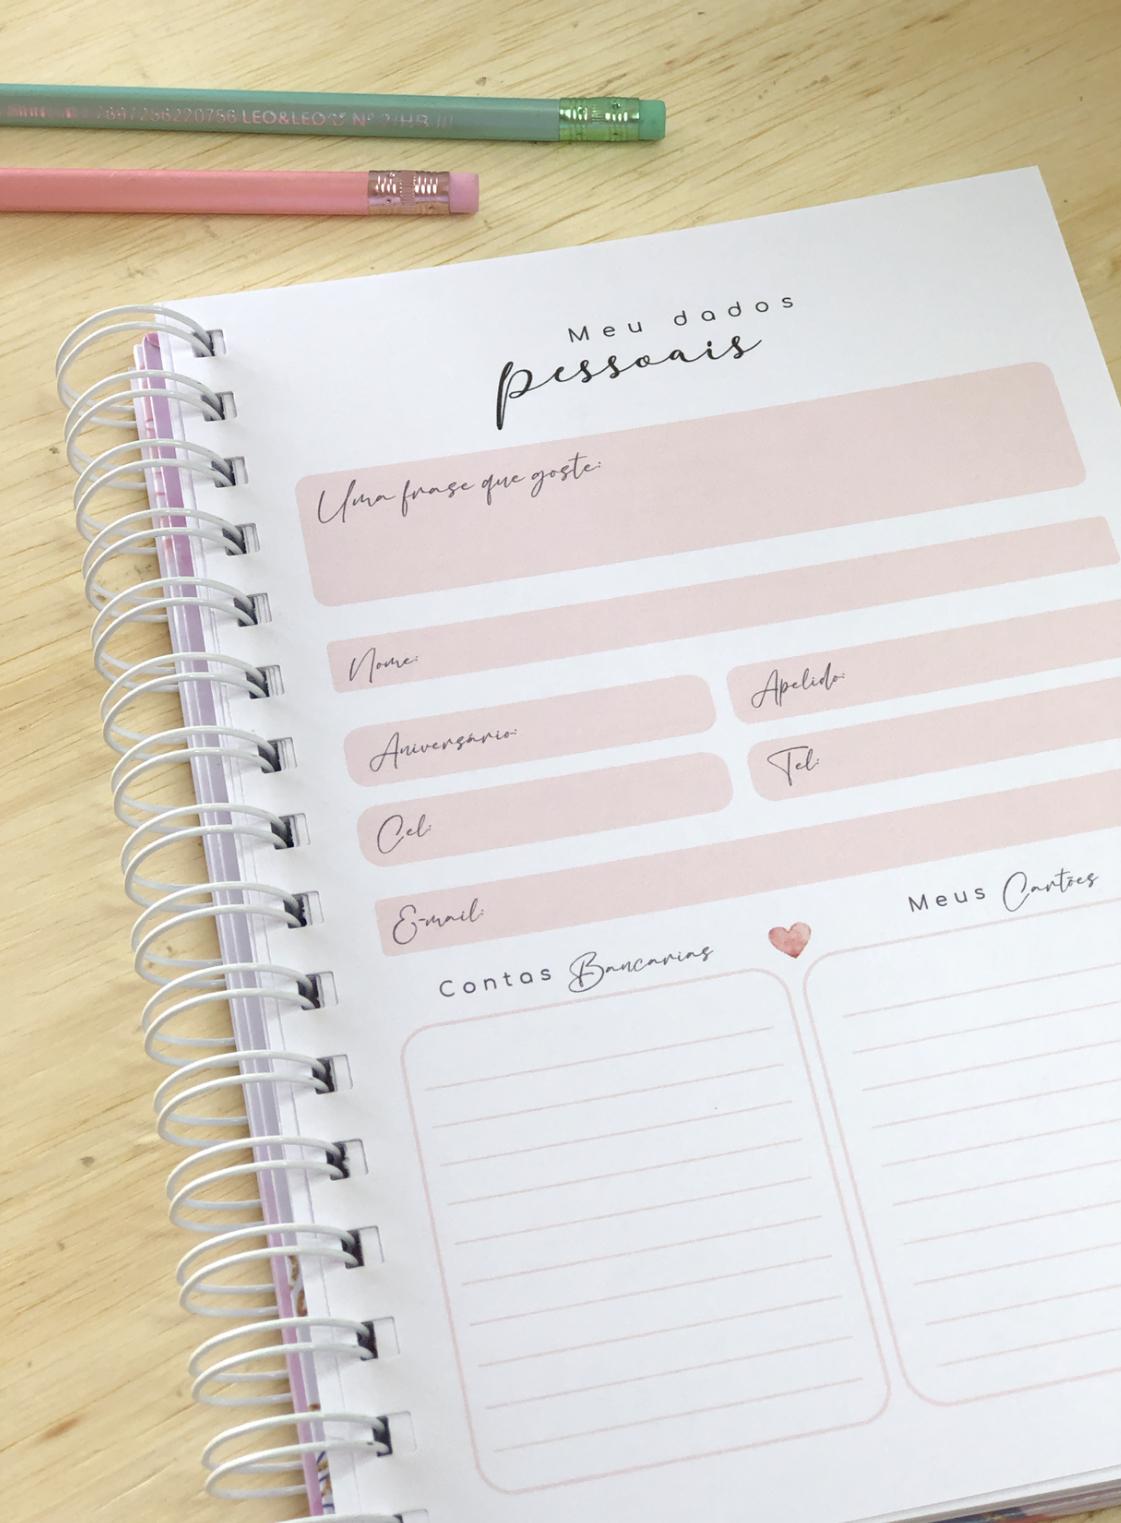 7897256220756 LEO&LEO Nº 2/HB
Meu dados
pessoais
Uma frase que goste:
Nome:
Aniversário: Apelido:
Cel: Tel:
E-mail:
Contas Bancarias Meus Cartões